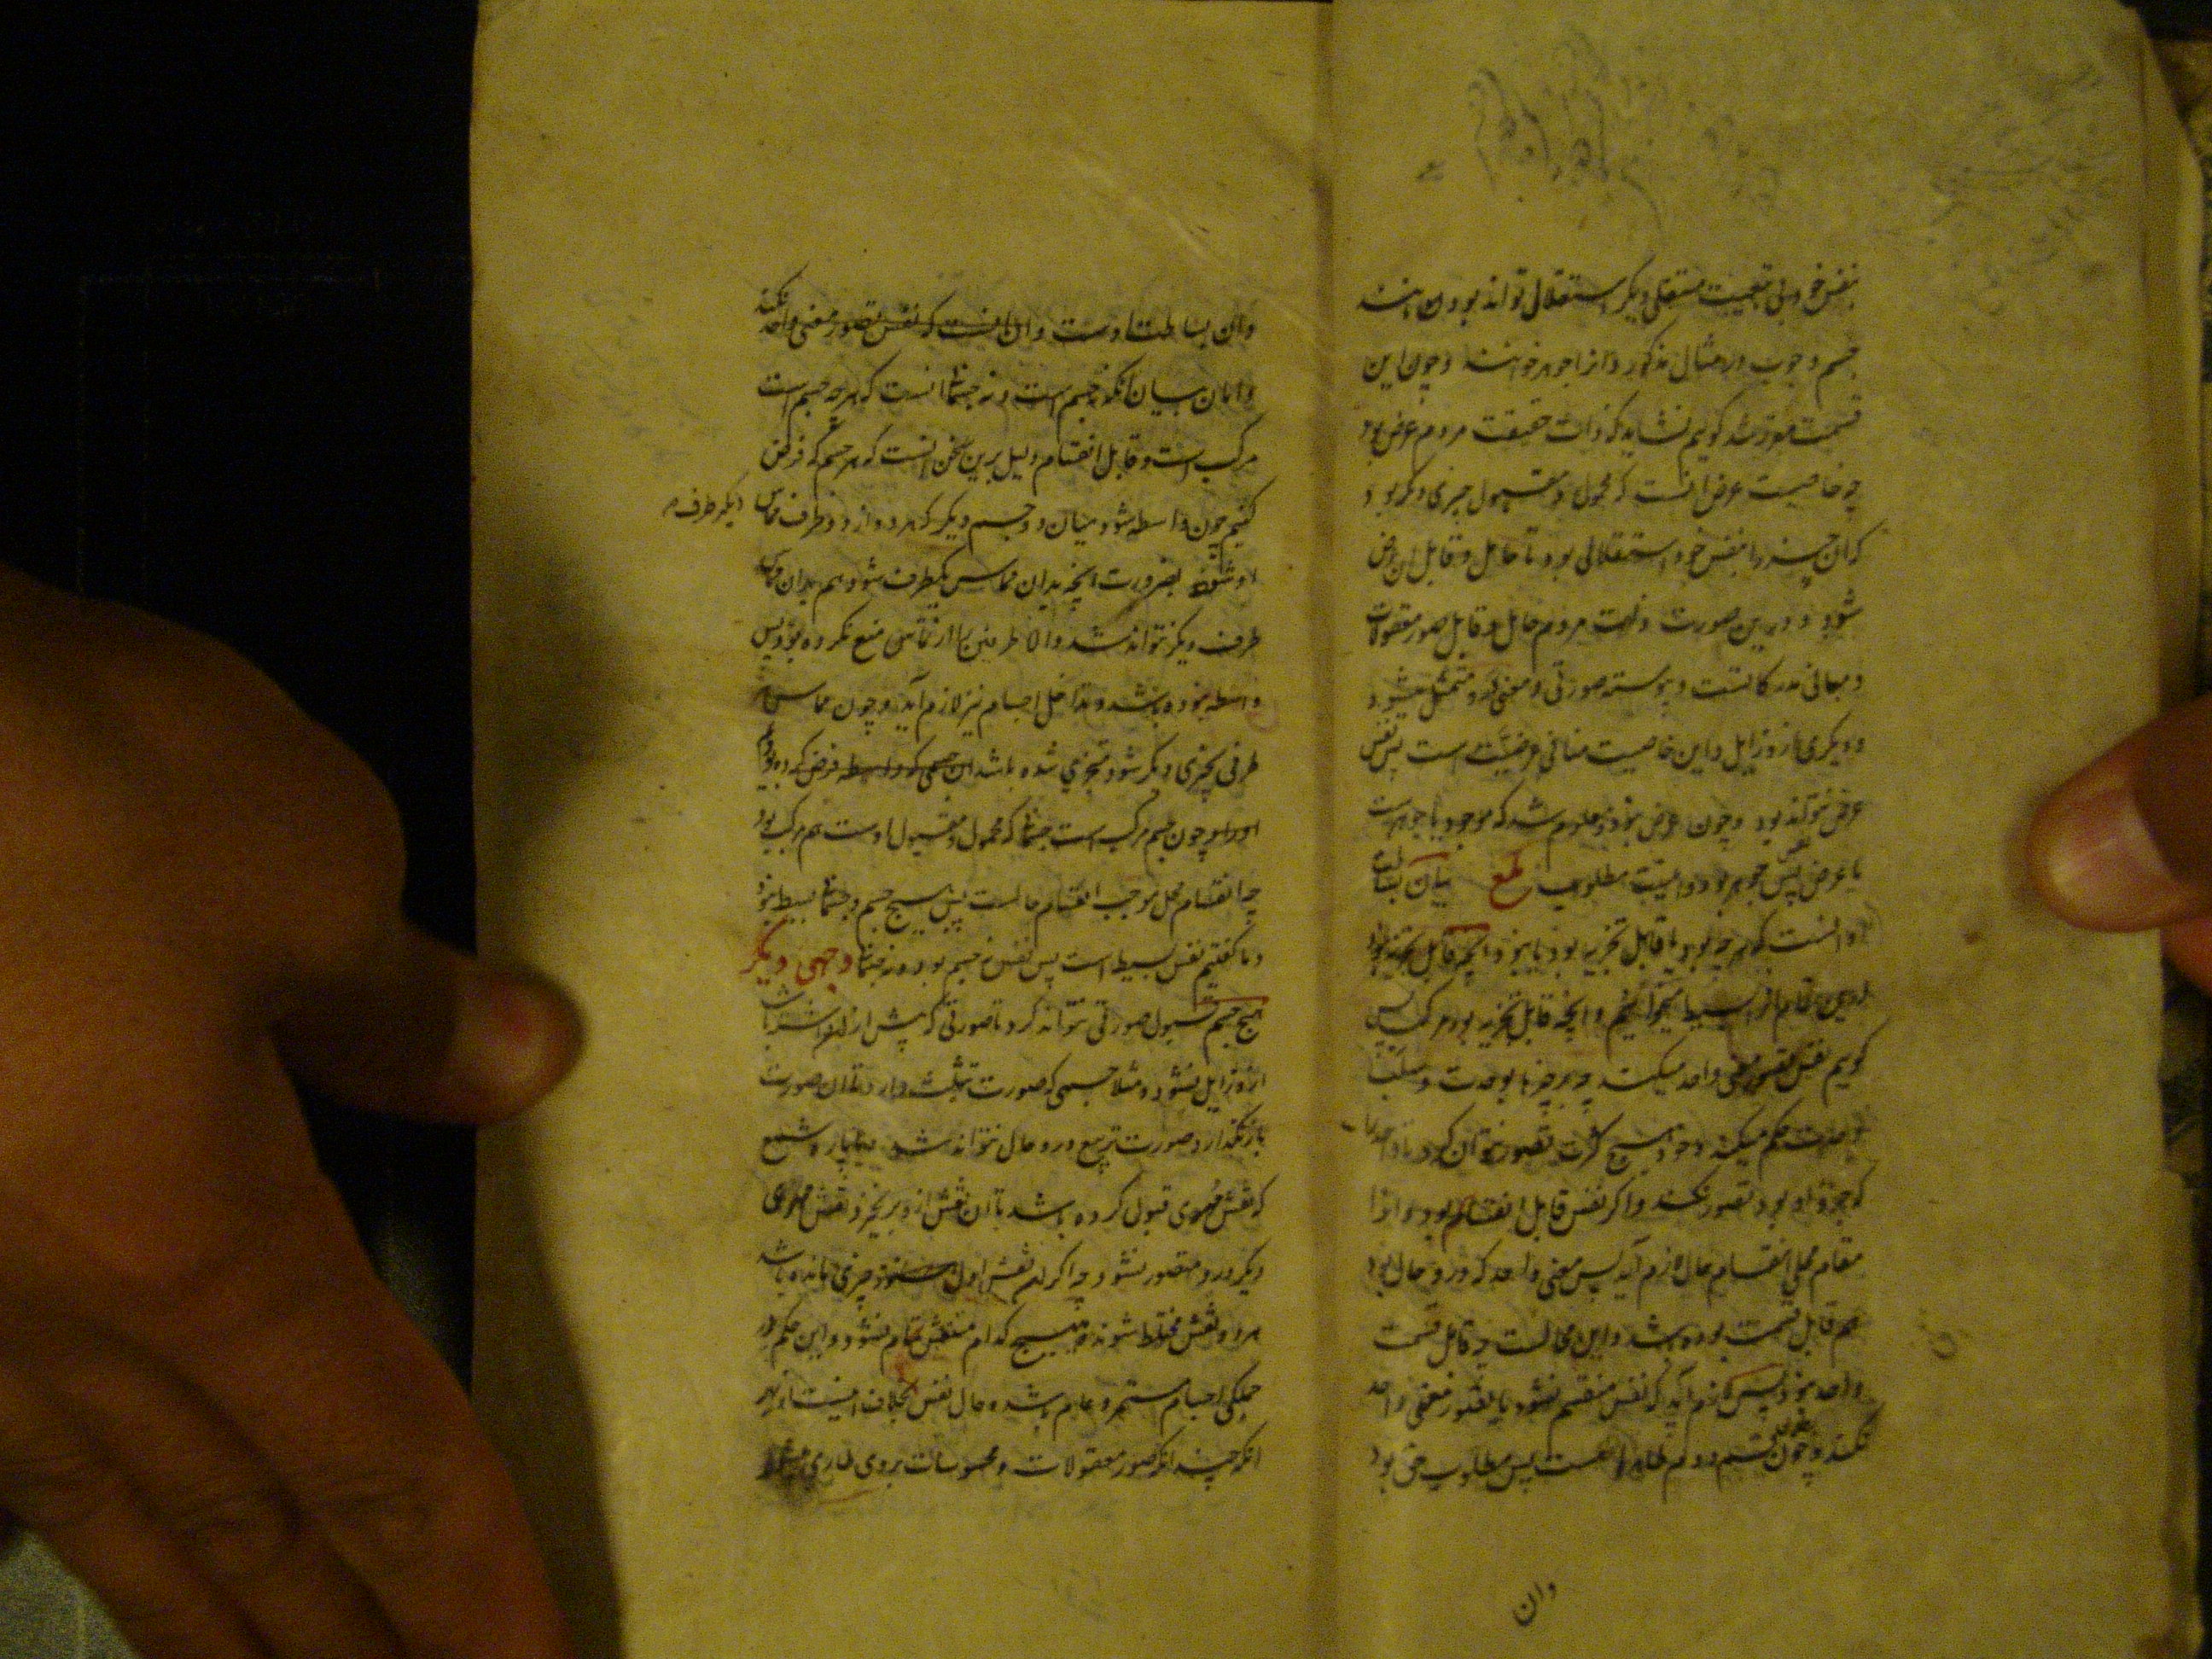 بنفس خود بی تبعیت مستقلی دیگر استقلال تواند بود مانند
جسم و چوب در مثال مذکور و آنرا جوهر خوانند و چون این
قسمت مقرر شد گوییم نشاید که ذات حقیقت مردم عرض بود
چه خاصیت عرض آنست که محمول و مقبول چیزی دیگر بود
که آن چیز را بنفس خود استقلالی بود تا حامل و قابل آن عرض
شود و درین صورت ذات مردم حامل و قابل صور معقولات
و معانی مدرکاتست و پیوسته صورتی و معنی درو متمثل میشود
و دیگری ازو زایل و این خاصیت منافی عرضیت است پس نفس
عرض نتواند بود و چون عرض نبود و معلوم شد که موجود یا جوهرست
یا عرض پس نفس جوهر بود و اینست مطلوب بیان بساطت
او آنست که هر چه بود یا قابل تجزیه بود یا نبود و آنچه قابل تجزیه نبود
درین مقام آنرا بسیط میخوانیم و آنچه قابل تجزیه بود مرکب پس
گوییم نفس تصور معنی واحد میکند چه بر چیزها بوحدت و سلب
وحدت حکم میکند و خود هیچ کثرت تصور نتوان کرد تا واحد را
که جزو او بود تصور نکند و اگر نفس قابل انقسام بود و از انقسام
محل انقسام حال لازم آید پس معنی واحد که درو حال بود
هم قابل قسمت بوده باشد و این محالست چه قابل قسمت
واحد نبود پس لازم آید که نفس منقسم نشود یا تصور معنی واحد
نکند و چون بطلان قسم دوم ظاهر است پس مطلوب حق بود
وان
وان بساطت اوست
و اما بیان آنکه نه جسم است و نه جسمانی آنست که هر چه جسم است
مرکب است و قابل انقسام دلیل برین سخن آنست که هر جسم که فرض
کنیم چون واسطه شود میان دو جسم دیگر که هر دو از دو طرف مماس
دیگر طرف
او شوند بضرورت آنچه بدان مماس یکطرف شود هم بدان مماس
طرف دیگر نتواند شد و الا طرفین را از تماس منع نکرده بود پس
واسطه نبوده باشد و تداخل اجسام نیز لازم آید و چون مماس هر
طرفی بچیزی دیگر شود متجزی شده باشد
اورا و چون جسم مرکب است جسمانی که محمول و مقبول اوست هم مرکب بود
چه انقسام محل موجب انقسام حالست پس هیچ جسم و جسمانی بسیط نبود
و ما گفتیم نفس بسیط است پس نفس نه جسم بود و نه جسمانی وجهی دیگر
هیچ جسم قبول صورتی نتواند کرد تا صورتی که پیش از آن داشته باشد
ازو زایل نشود و مثلا جسمی که صورت تثلیث دارد تا آن صورت
باز نگذارد صورت تربیع درو حال نتواند شد یا پاره شمع
که نقش مهری قبول کرده باشد تا آن نقش ازو بر نخیزد نقش مهری
دیگر درو متصور نشود چه اگر از نقش اول چیزی مانده باشد
هر دو نقش مختلط شوند و هیچ کدام منقش تمام نشود و این حکم در
جملگی اجسام مستمر و عام باشد و حال نفس بخلاف اینست از بهر
آنکه چندانکه صور معقولات و محسوسات بر وی طاری